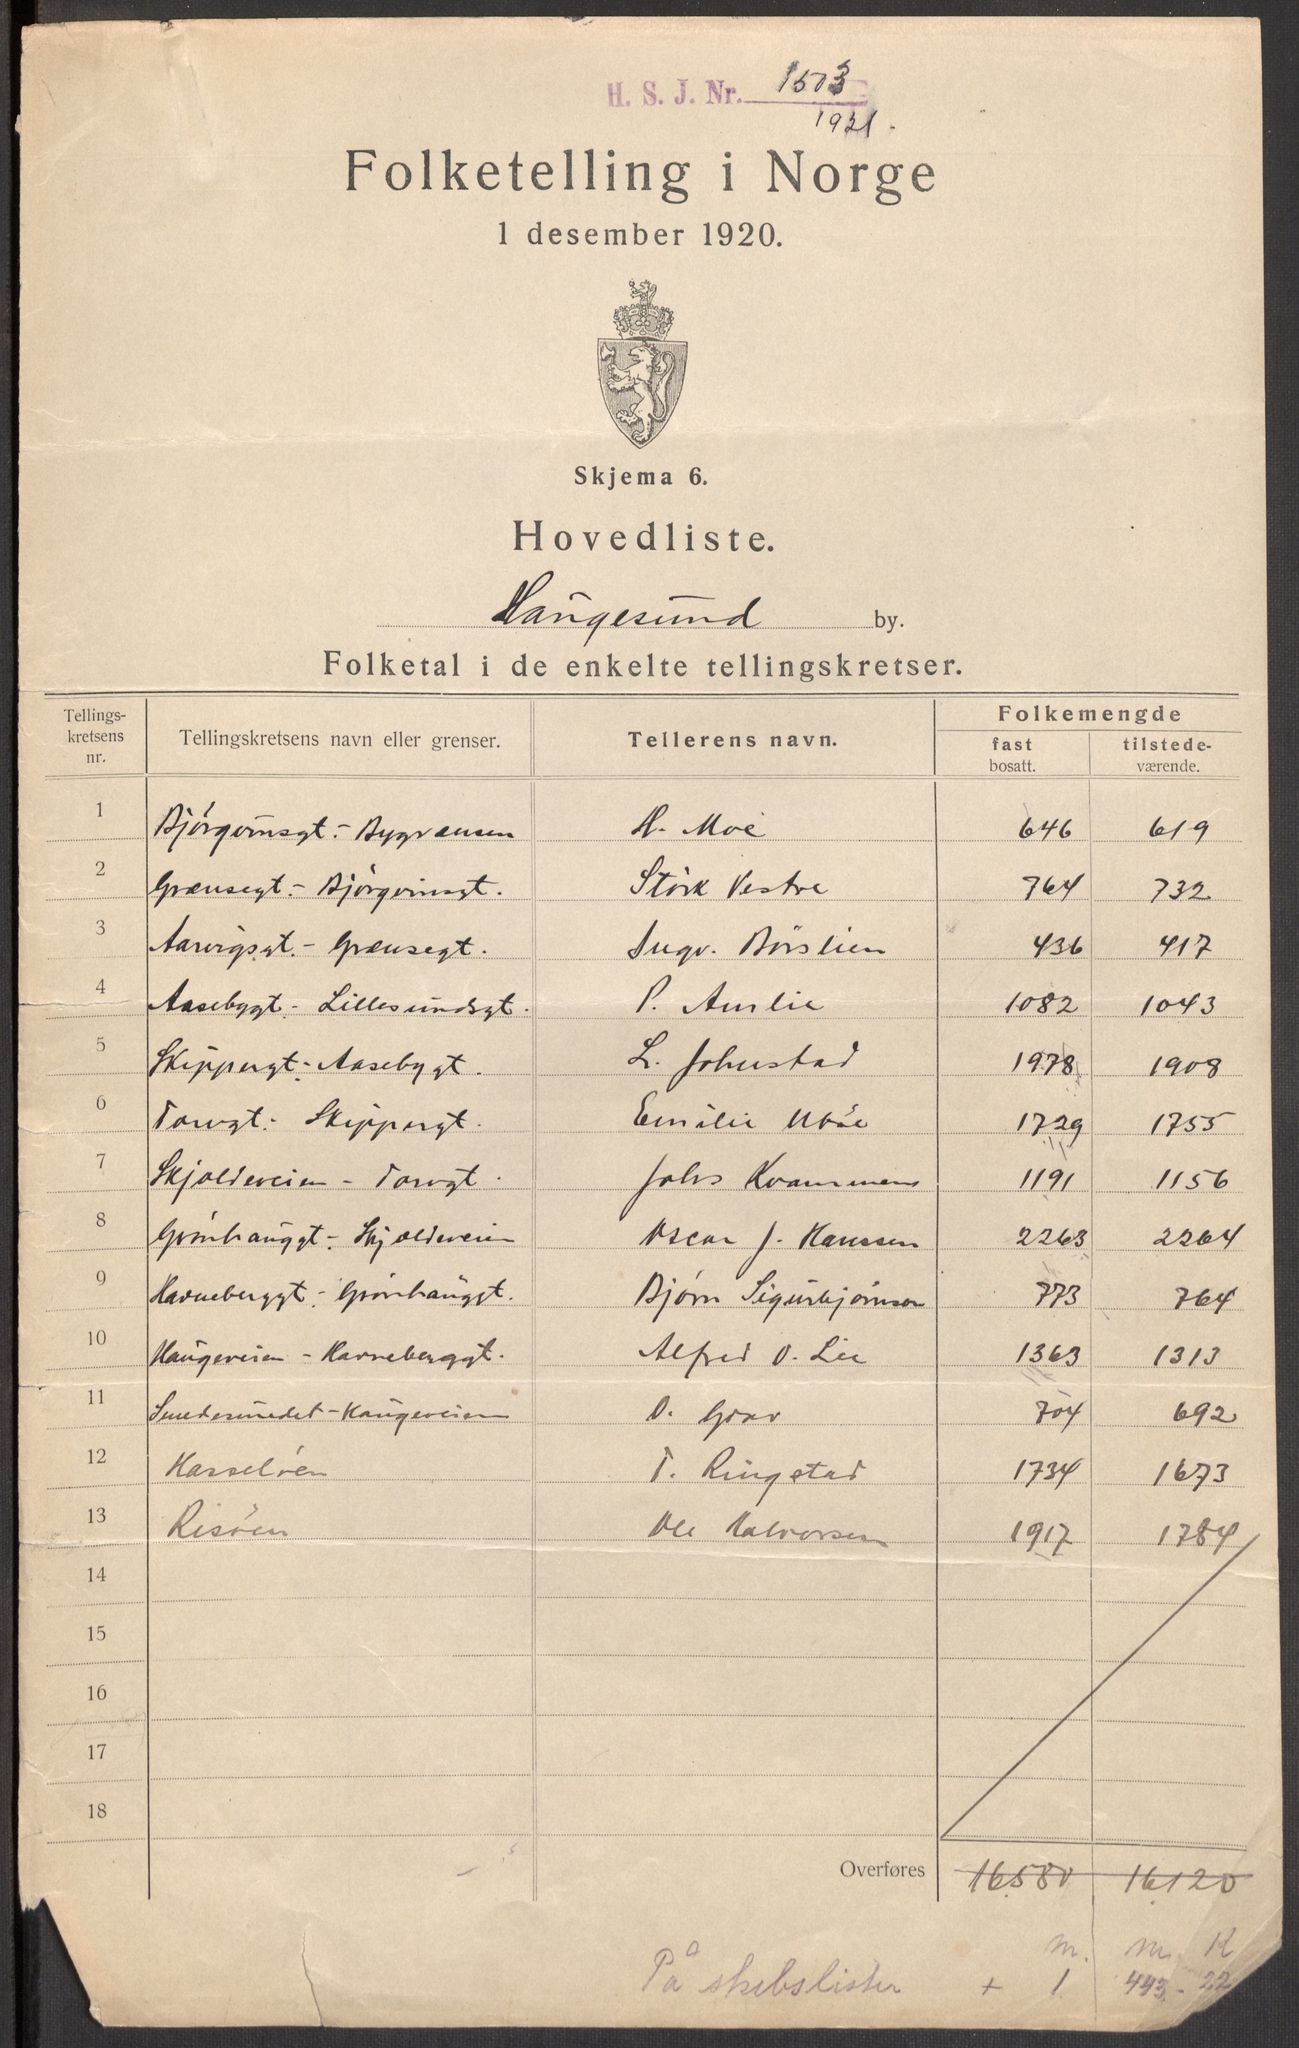 H. S. J. Nr. 1503
1921.
Folketelling i Norge
1 desember 1920.
Skjema 6.
Hovedliste.
Haugesund by.
Folketal i de enkelte tellingskretser.
Tellings-kretsens nr. Tellingskretsens navn eller grenser. Tellerens navn. Folkemengde fast bosatt. tilstede-værende.
1 Bjørgvinsgt. - Bygrænsen H. Moe 646 619
2 Grænsegt. - Bjørgvinsgt. Störk Vestre 764 732
3 Aarvigsgt. - Grænsegt. Ingv. Börslien 436 417
4 Aasebygt. - Lillesundsgt. P. Aurlie 1082 1043
5 Skippergt. - Aasebygt. L. Johnstad 1978 1908
6 Torvgt. - Skippergt. Emilie Uböe 1729 1755
7 Skjoldeveien - Torvgt. Johs Kvammens 1191 1156
8 Grönhauggt. - Skjoldeveien Oscar J. Hanssen 2263 2264
9 Havneberggt. - Grönhauggt. Bjørn Sigurbjørnson 773 764
10 Haugeveien - Havneberggt. Alfred O. Lie 1363 1313
11 Smedesundet - Haugeveien O. Grav 704 692
12 Hasselöen T. Ringstad 1734 1673
13 Risöen Ole Halvorsen 1917 1784
14
15
16
17
18
Overføres 16580 16120
m. m. K
På skibslister + 1 443 - 22